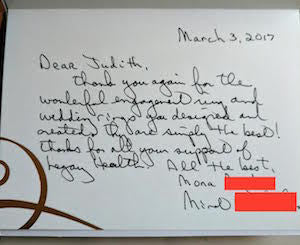 March 3, 2017
Dear Judith,
thank you again for the
wonderful engagement ring and
wedding rings you designed and
created they are simply the best!
thanks for all your support of
Legacy Health. All the best,
Mona